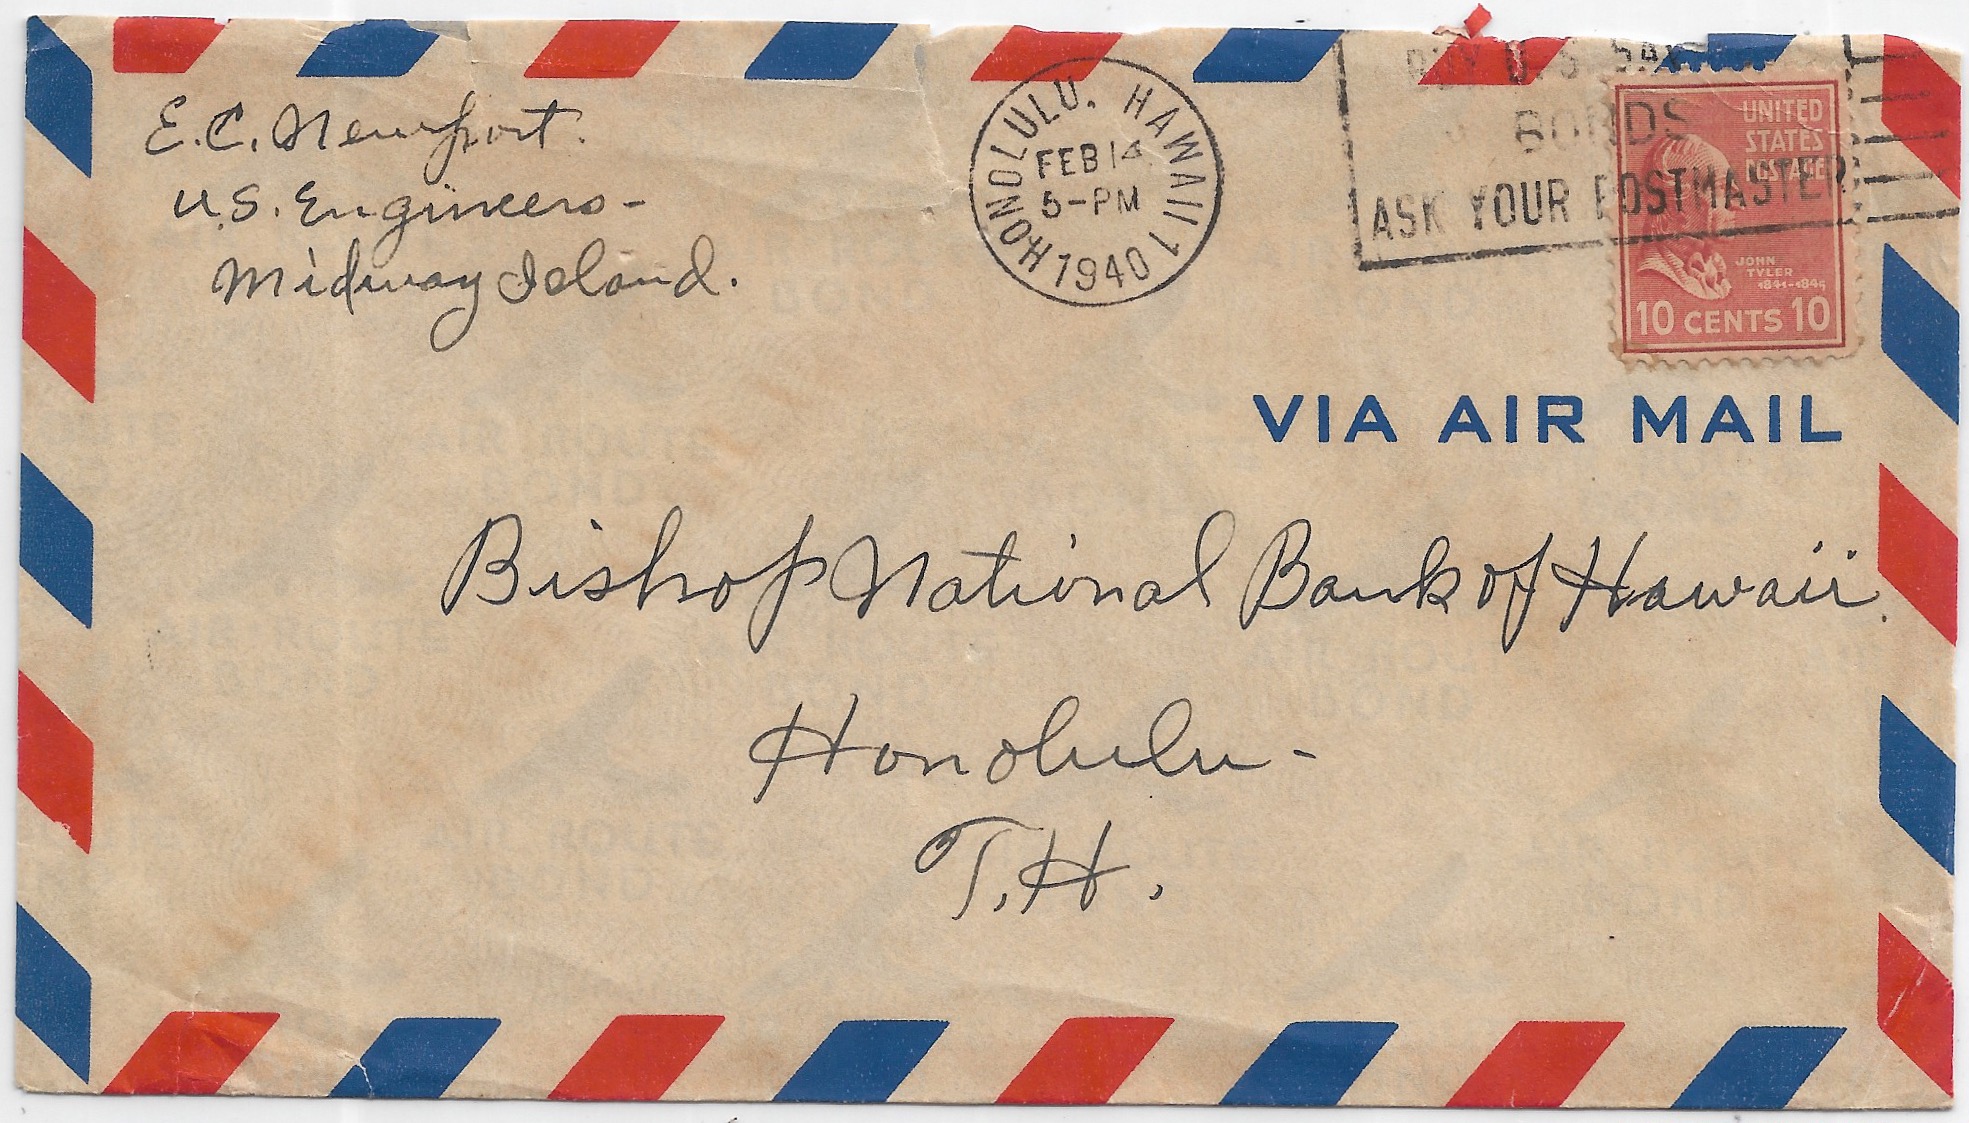 E.C. Newport.
U.S. Engineers-
Midway Island.
HONOLULU, HAWAII 1
FEB 14
5-PM
1940
BUY U.S. SAV
BONDS
ASK YOUR POSTMASTER
UNITED
STATES
POSTAGE
JOHN
TYLER
1841-1845
10 CENTS 10
VIA AIR MAIL
Bishop National Bank of Hawaii.
Honolulu-
T.H.